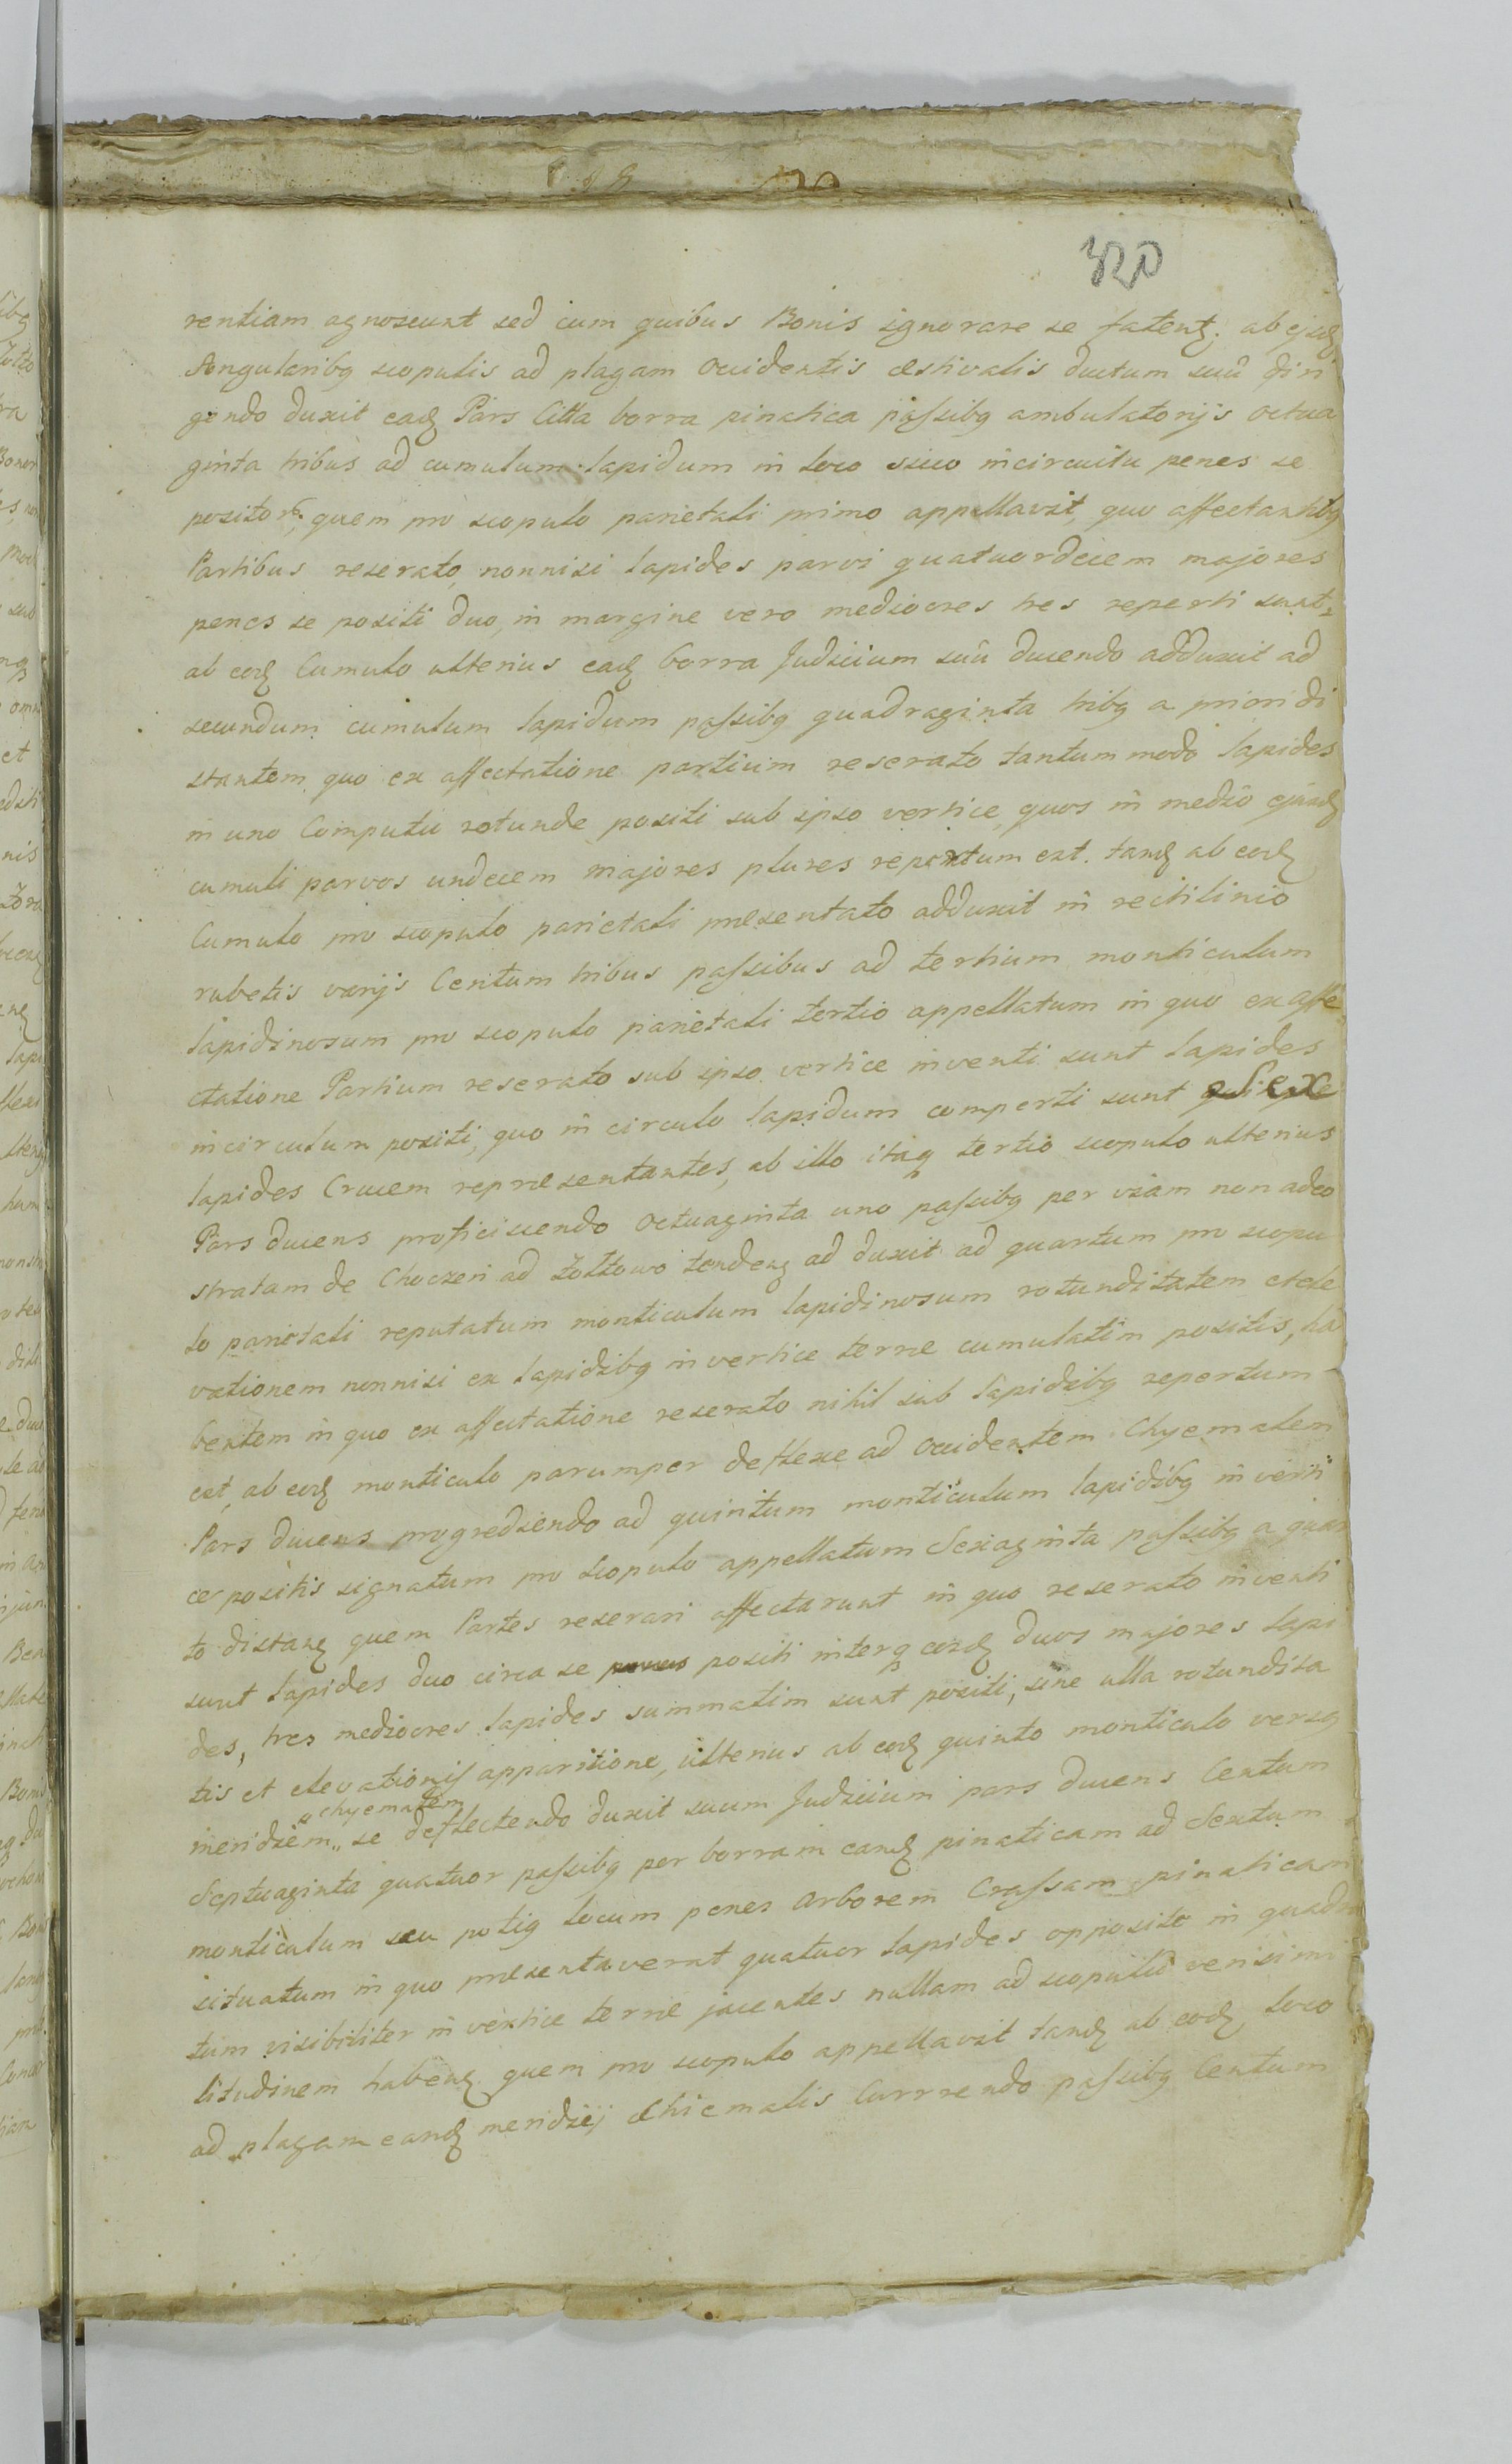 320
rentiam agnoscunt sed cum quibus Bonis ignorare se fatentꝫ; ab ejusdꝫ
Angularibꝫ scopulis ad plagam Occidentis æstivalis ductum suũ diri
gendo duxit eadꝫ Pars Citta borra pinatica paſsibꝫ ambulatorijs octua
ginta tribus ad cumulum lapidum in loco sicco incircuitu penes se
positorꝫ; quem pro scopulo parietali primo appellavit, quo affectantibꝫ
Partibus reserato, nonnisi lapides parvi quatuordecem majores
penes se positi duo, in margine vero mediocres tres reperti sunt.
ab eodꝫ Cumulo ulterius eadꝫ borra Judicium suũ ducendo adduxit ad
secundum cumulum lapidum paſsibꝫ quadraginta tribꝫ a priori di
stantem, quo ex affectatione partium reserato tantummodo lapides
in uno Computu rotunde positi sub ipso vertice, quos in medio ejusdꝫ
cumuli parvos undecem majores plures repertum est. tandꝫ ab eodꝫ
Cumulo pro scopulo parietali præsentato adduxit in rectilinio
rubetis varijs Centum tribus paſsibus ad tertium monticulum
lapidinosum pro scopulo parietali tertio appellatum in quo ex affe
ctatione Partium reserato sub ipso vertice inventi sunt lapides
incirculum positi, quo in circulo lapidum comperti sunt sex
lapides Crucem repræsentantes, ab illo itaqꝫ tertio scopulo ulterius
Pars ducens proficiscendo Octuaginta uno paſsibꝫ per viam non adeo
stratam de Choczen ad Zołtowo tendenꝫ ad duxit ad quartum pro scopu
lo parietali reputatum monticulum lapidinosum rotunditatem et ele
vationem nonnisi ex lapidibꝫ in vertice terræ cumulatim positis, ha
bentem in quo ex affectatione reserato nihil sub lapidibꝫ repertum
est, ab eodꝫ monticulo parumper deflexe ad Occidentem Chyemalem
Pars ducens progrediendo ad quintum monticulum lapidibꝫ in verti
ce positis signatum pro scopulo appellatum Sexaginta paſsibꝫ a quar
to distanꝫ quem Partes reserari affectarunt in quo reserato inventi
sunt lapides duo circa se positi interqꝫ eosdꝫ duos majores lapi
des, tres mediocres lapides summatim sunt positi, sine ulla rotundita
tis et elevationis apparitione, ulterius ab eodꝫ quinto monticulo versꝫ
chyemalem
meridiem „ se deflectendo duxit suum Judicium pars ducens Centum
Septuaginta quatuor paſsibꝫ per borram eandꝫ pinaticam ad Sextum
monticulum seu potiꝫ locum penes Arborem Craſsam pinaticam
situatum in quo præsentaverat quatuor lapides opposite in quadra
tum visibiliter in vertice terræ jacentes nullam ad scopulũ verisimi
litudinem habenꝫ. quem pro scopulo appellavit tandꝫ ab eodꝫ loco
ad plagam eandꝫ meridiej Chiemalis Currendo paſsibꝫ Centum